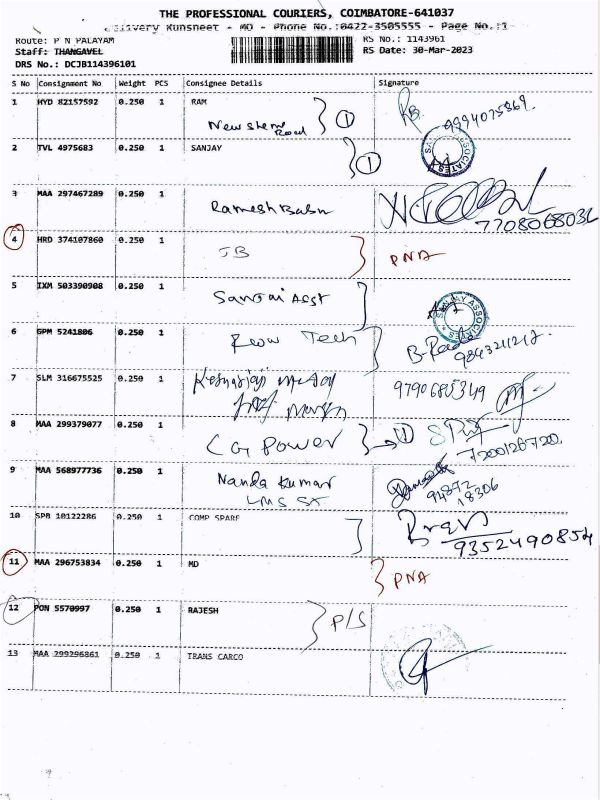 THE PROFESSIONAL COURIERS, COIMBATORE-641037
Delivery Runsheet - MO - Phone No.:0422-3505555 - Page No.:1
Route: P N PALAYAM
RS No.: 1143961
Staff: THANGAVEL
RS Date: 30-Mar-2023
DRS No.: DCJB114396101
S No Consignment No Weight PCS Consignee Details Signature
1 HYD 82157592 0.250 1 RAM
1
9994075869.
2 TVL 4975683 0.250 1 SANJAY
1
3 MAA 297467289 0.250 1 Ramesh Babu
4 HRD 374107860 0.250 1 JB PNA
5 IXM 503390908 0.250 1 Sanjai Asst
SANJAY ASSOCIATES
6 GPM 5241806 0.250 1 Tech
9843211212.
7 SLM 316675525 0.250 1
9790685349
8 MAA 299379077 0.250 1 CG Power 1
7200126720.
9 MAA 568977736 0.250 1 Nanda Kumar
LMS ST
94872
18306
10 SPB 10122286 0.250 1 COMP SPARE
9352490854
11 MAA 296753834 0.250 1 MD PNA
12 PON 5570997 0.250 1 RAJESH P/S
13 MAA 299296861 0.250 1 TRANS CARCO